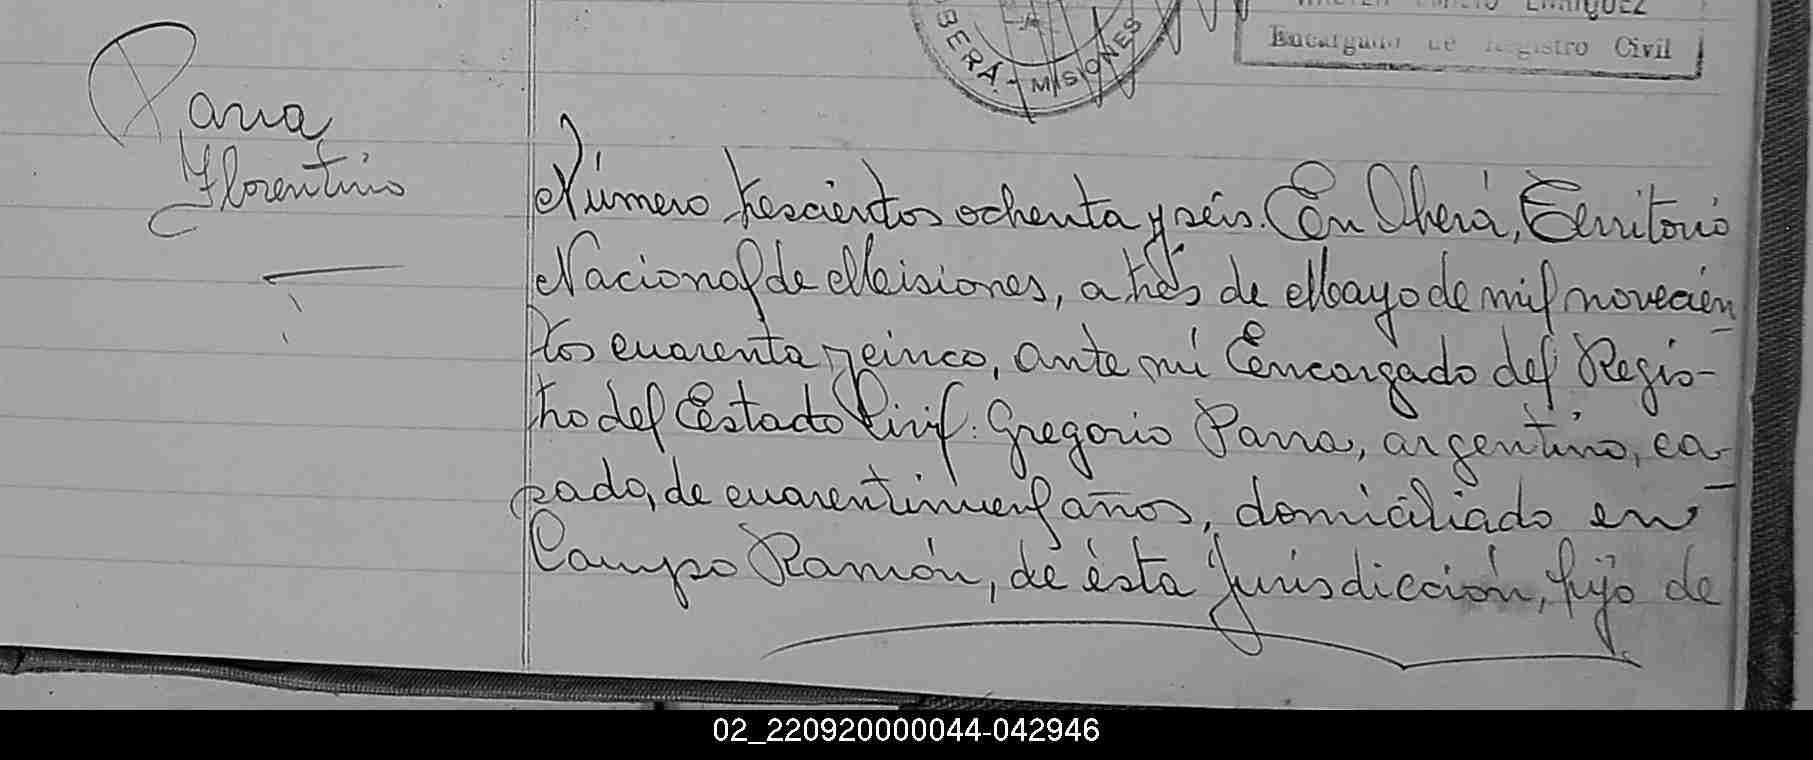 OBERÁ - MISIONES
ENRIQUEZ
Encargado de Registro Civil
Parra
Florentino
Número trescientos ochenta y séis. En Oberá, Territorio
Nacional de Misiones, a trés de Mayo de mil novecien
tos cuarenta y cinco, ante mí Encargado del Regis-
tro del Estado Civil: Gregorio Parra, argentino, ca-
sado, de años, domiciliado en
Campo Ramón, de ésta Jurisdicción, hijo de
02_220920000044-042946